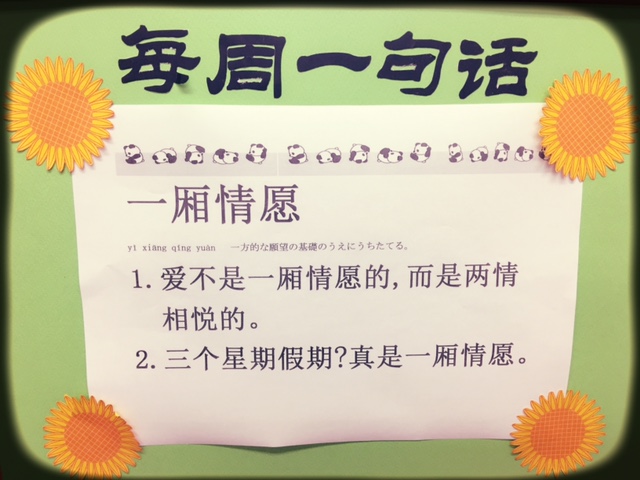 每周一句话
一厢情愿
yī xiāng qíng yuàn 一方的な願望の基礎のうえにうちたてる。
1.爱不是一厢情愿的,而是两情
相悦的。
2.三个星期假期?真是一厢情愿。